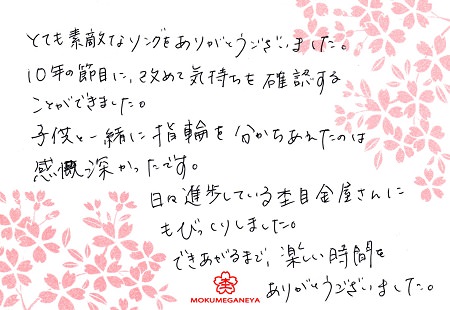 とても素敵なリングをありがとうございました。
10年の節目に、改めて気持ちを確認する
ことができました。
子供と一緒に指輪を分かちあれたのは
感慨深かったです。
日々進歩している杢目金屋さんに
もびっくりしました。
できあがるまで、楽しい時間を
ありがとうございました。
杢
MOKUMEGANEYA